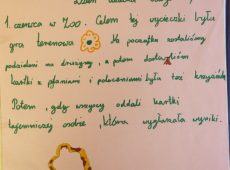 1 czerwca w ZOO. Celem tej wycieczki była
gra terenowa Na początku zostaliśmy
podzieleni na drużyny, a potem dostaliśmy
kartki z pytaniami i poleceniami była też krzyżówka
Potem, gdy wszyscy oddali kartki
tajemniczej osobie, która wygłaszała wyniki.